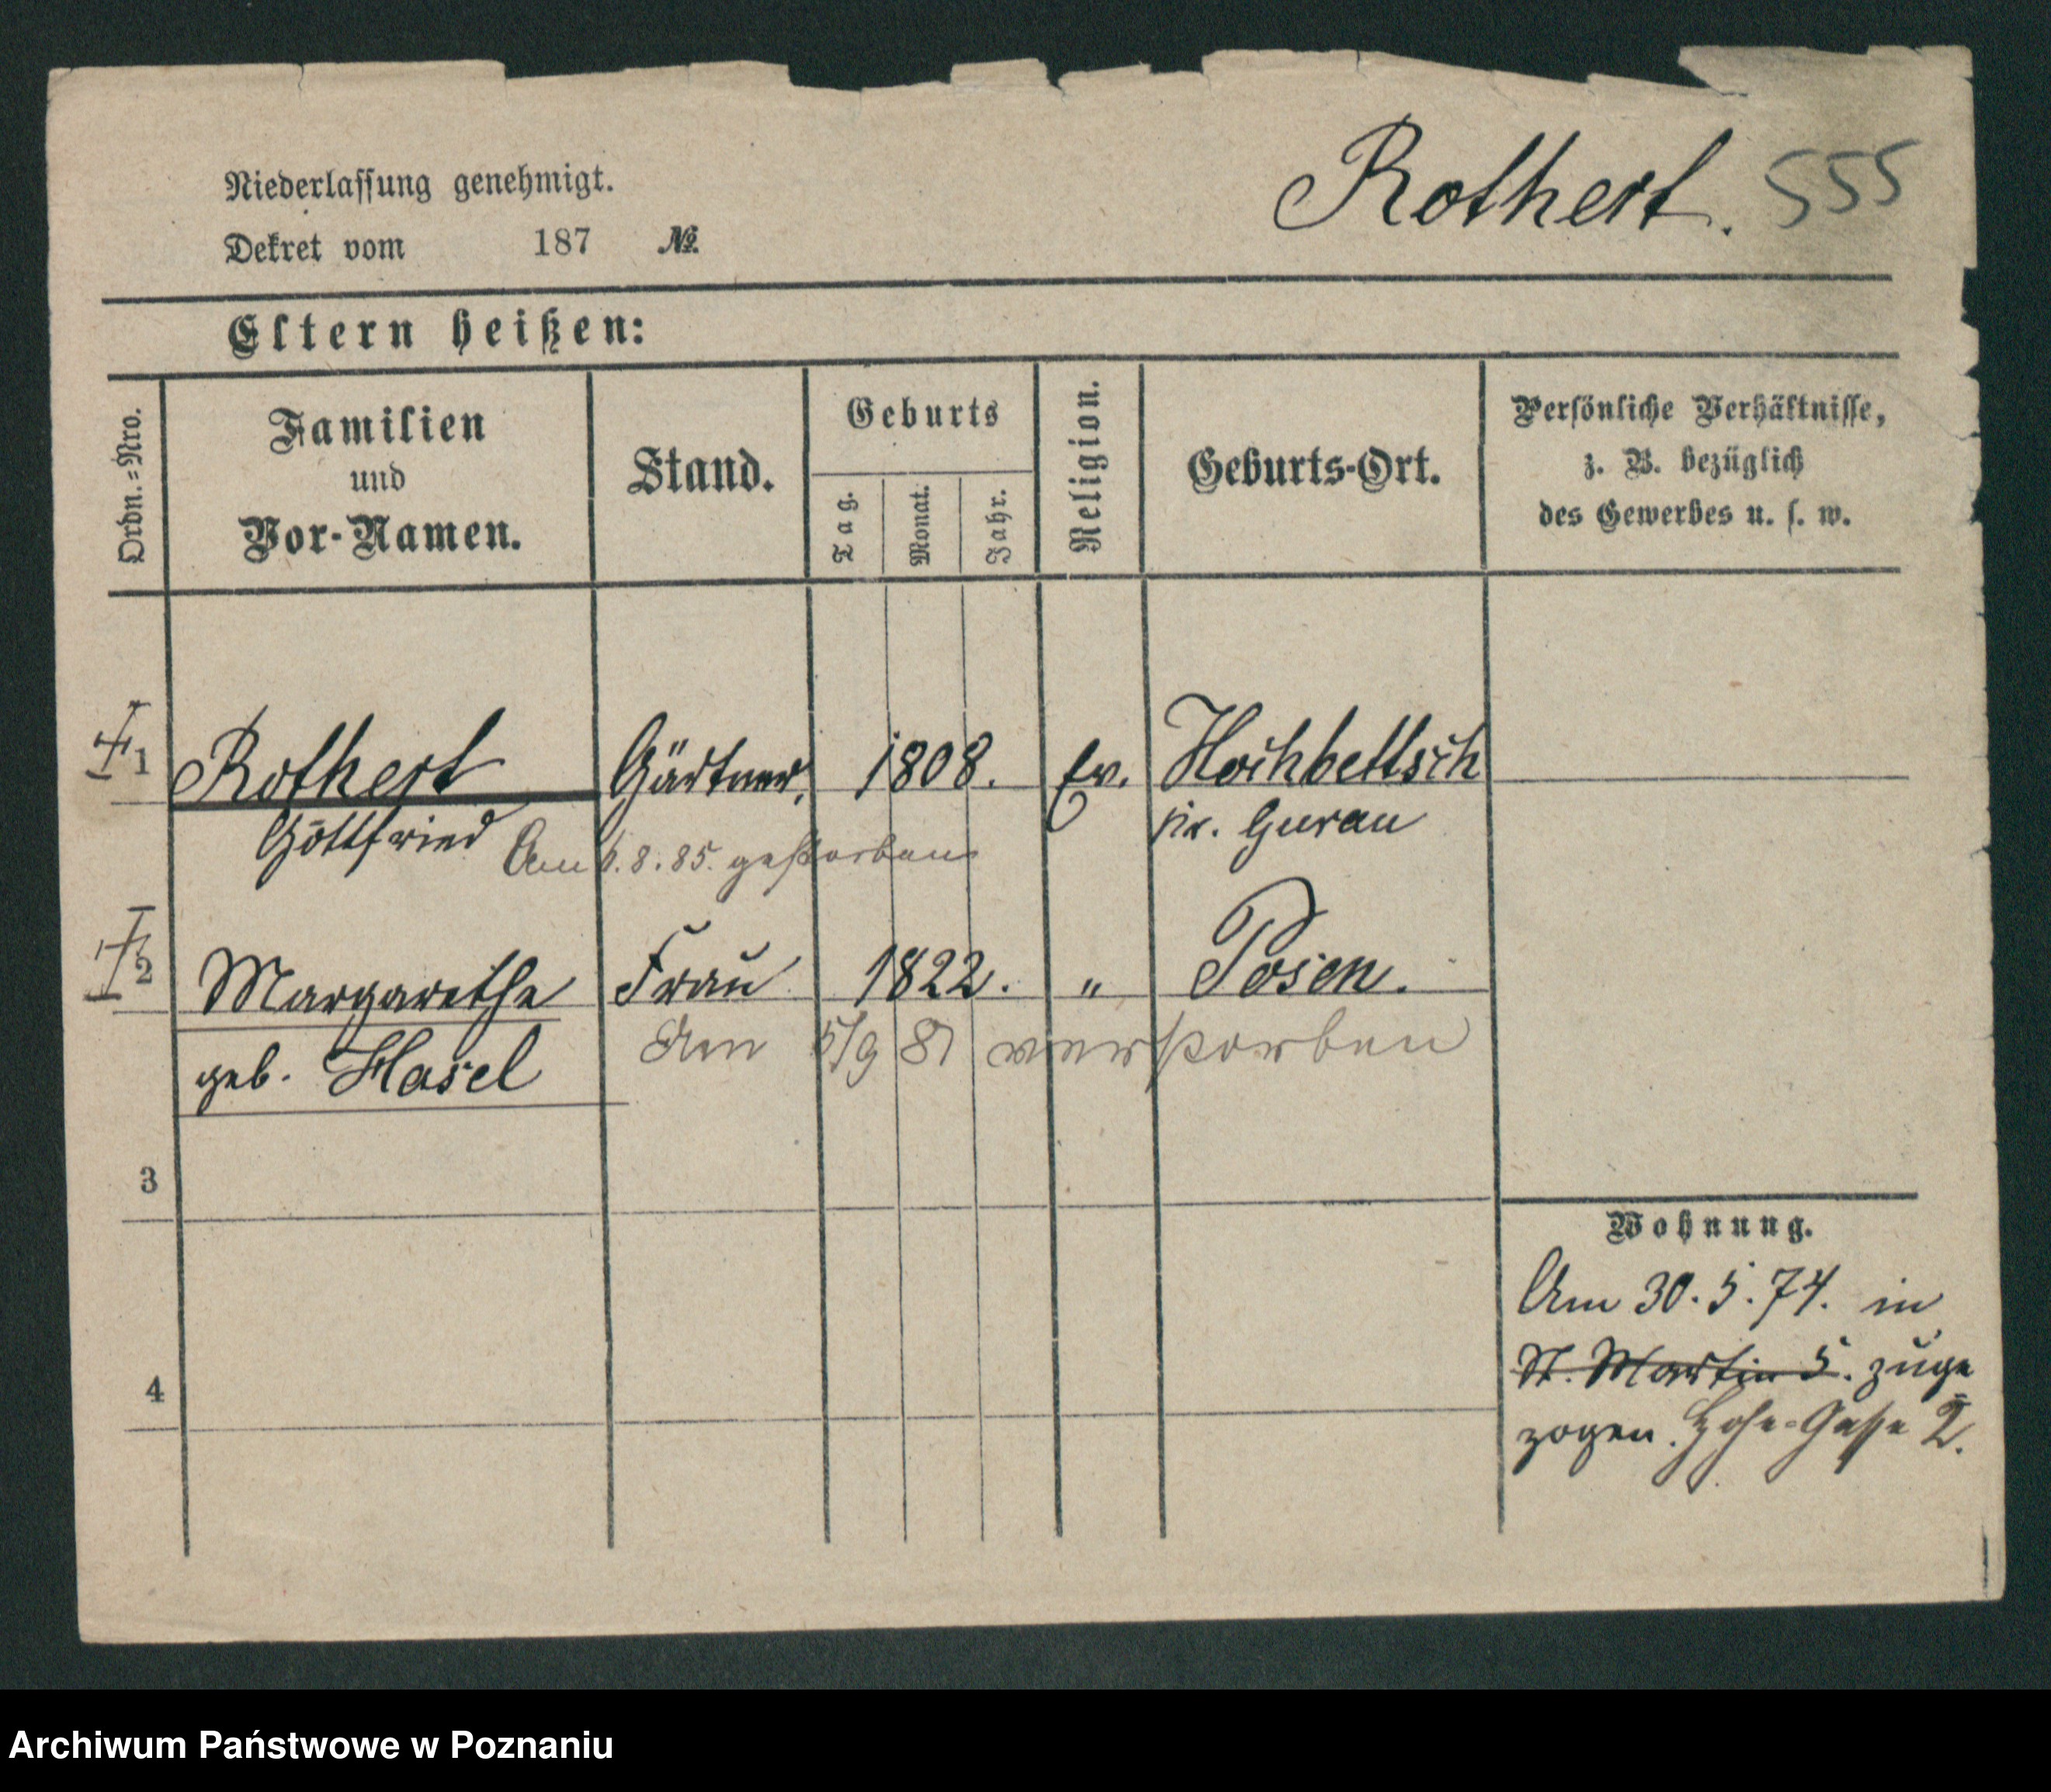 Rothert. 555
Niederlassung genehmigt.
Dekret vom 187 №
Eltern heißen:
Ordn.=Nro.
Familien
und
Vor-Namen.
Stand.
Geburts
Tag.
Monat.
Jahr.
Religion.
Geburts-Ort.
Persönliche Verhältnisse,
z. B. bezüglich
des Gewerbes u. s. w.
1 Rothert Gärtner. 1808. Ev. Hochbeltsch
Gottfried Kr. Gurau
Am 6.8.85. gestorben
2 Margarethe Frau 1822. " Posen.
geb. Hasel
Am 5/9 81 verstorben
3
4
Wohnung.
Am 30.5.74. in
St. Martin 5. zuge
zogen. Hohe-Gasse 2.
Archiwum Państwowe w Poznaniu